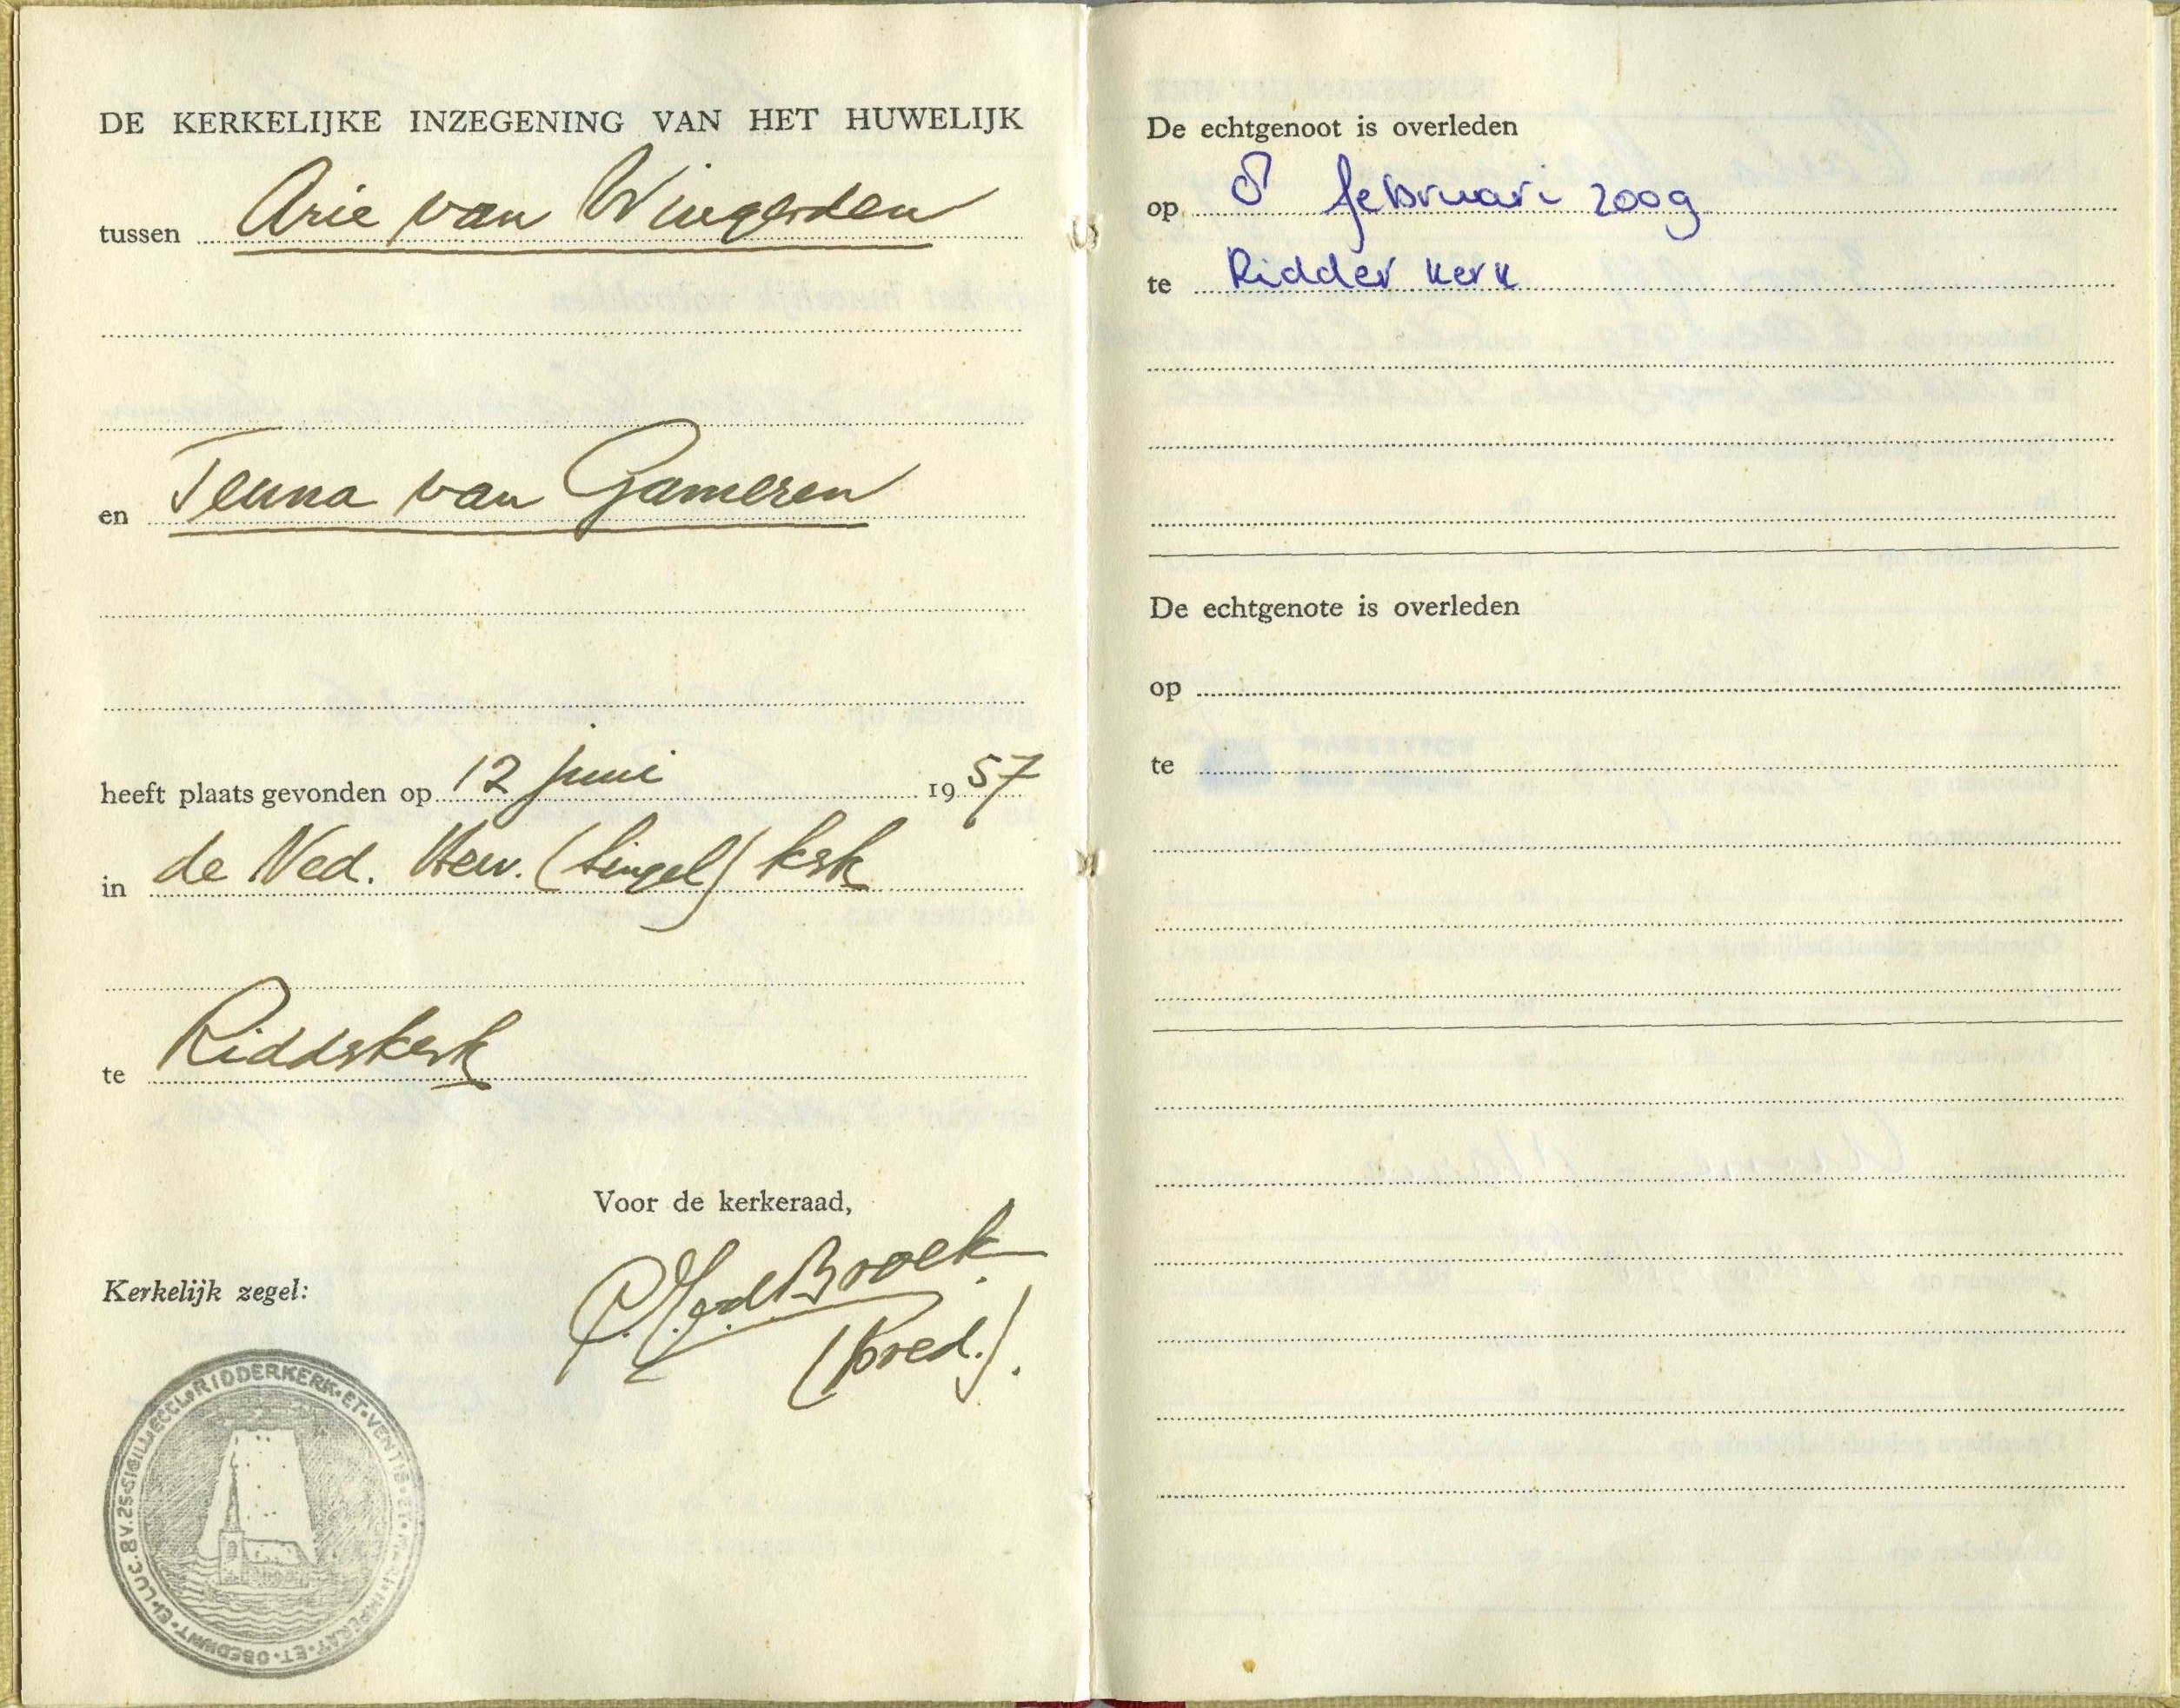 DE KERKELIJKE INZEGENING VAN HET HUWELIJK
tussen Arie van Wingerden
en Teuna van Gameren
heeft plaats gevonden op 12 juni 1957
in de Ned. Herv. (Singel) kerk
te Ridderkerk
Voor de kerkeraad,
Broek
(pred.).
Kerkelijk zegel:
SIGILL·ECCL·RIDDERKERK·ET·VENTIS·ET·MARI·IMPERAT·ET·OBEDIUNT·EI·LUC.8V.25
De echtgenoot is overleden
op 8 februari 2009
te Ridderkerk
De echtgenote is overleden
op
te